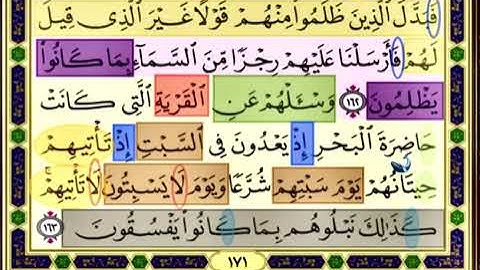 فَبَدَّلَ ٱلَّذِينَ ظَلَمُوا۟ مِنْهُمْ قَوْلًا غَيْرَ ٱلَّذِى قِيلَ
لَهُمْ فَأَرْسَلْنَا عَلَيْهِمْ رِجْزًا مِّنَ ٱلسَّمَآءِ بِمَا كَانُوا۟
يَظْلِمُونَ ١٦٢ وَسْـَٔلْهُمْ عَنِ ٱلْقَرْيَةِ ٱلَّتِى كَانَتْ
حَاضِرَةَ ٱلْبَحْرِ إِذْ يَعْدُونَ فِى ٱلسَّبْتِ إِذْ تَأْتِيهِمْ
حِيتَانُهُمْ يَوْمَ سَبْتِهِمْ شُرَّعًا وَيَوْمَ لَا يَسْبِتُونَ لَا تَأْتِيهِمْ ۚ
كَذَٰلِكَ نَبْلُوهُم بِمَا كَانُوا۟ يَفْسُقُونَ ١٦٣
١٧١